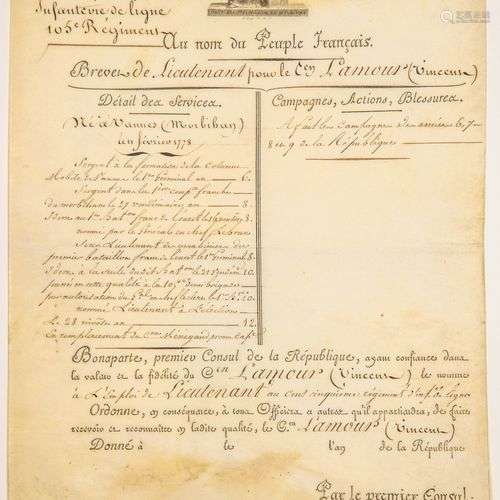 Infanterie de ligne
105e Régiment
Au nom du Peuple Français.
Brevet de Lieutenant pour le Cen Lamour (Vincent)
Détail des Services.
Né à Vannes (Morbihan)
en février 1778
Sergent à la formation de la Colonne
Mobile de Vannes le 1er Germinal an 6.
Sergent dans la 1ère compie franche
du morbihan le 27 vendémiaire an 8.
Idem au 1er Batон franc de l'ouest le 16 ventose, 8.
nommé par le Général en chef Lebrun
Sous Lieutenant de grenadiers du
premier bataillon franc de l'ouest le 1er Germinal 8.
Idem à la suite du dit Baton le 21 10.
passé en cette qualité à la 105e demi brigade
par autorisation du en chef le 1er 10.
nommé Lieutenant à l'élection
Le 28 nivose an 12.
en remplacement du Cen Ménegand promu Capne
Campagnes, Actions, Blessures.
A fait les Campagnes des années 6, 7
8 et 9 de la République
Bonaparte, premier Consul de la République, ayant confiance dans
la valeur et la fidélité du Cen Lamour (Vincent) le nomme
à L'Emploi de Lieutenant au Cent cinquième régiment d'inf. de ligne
Ordonne, en conséquence, à tous Officiers et autres qu'il appartiendra, de faire
recevoir et reconnaître en ladite qualité, le Cen Lamour (Vincent)
Donné à le l'an de la République
Par le premier Consul.